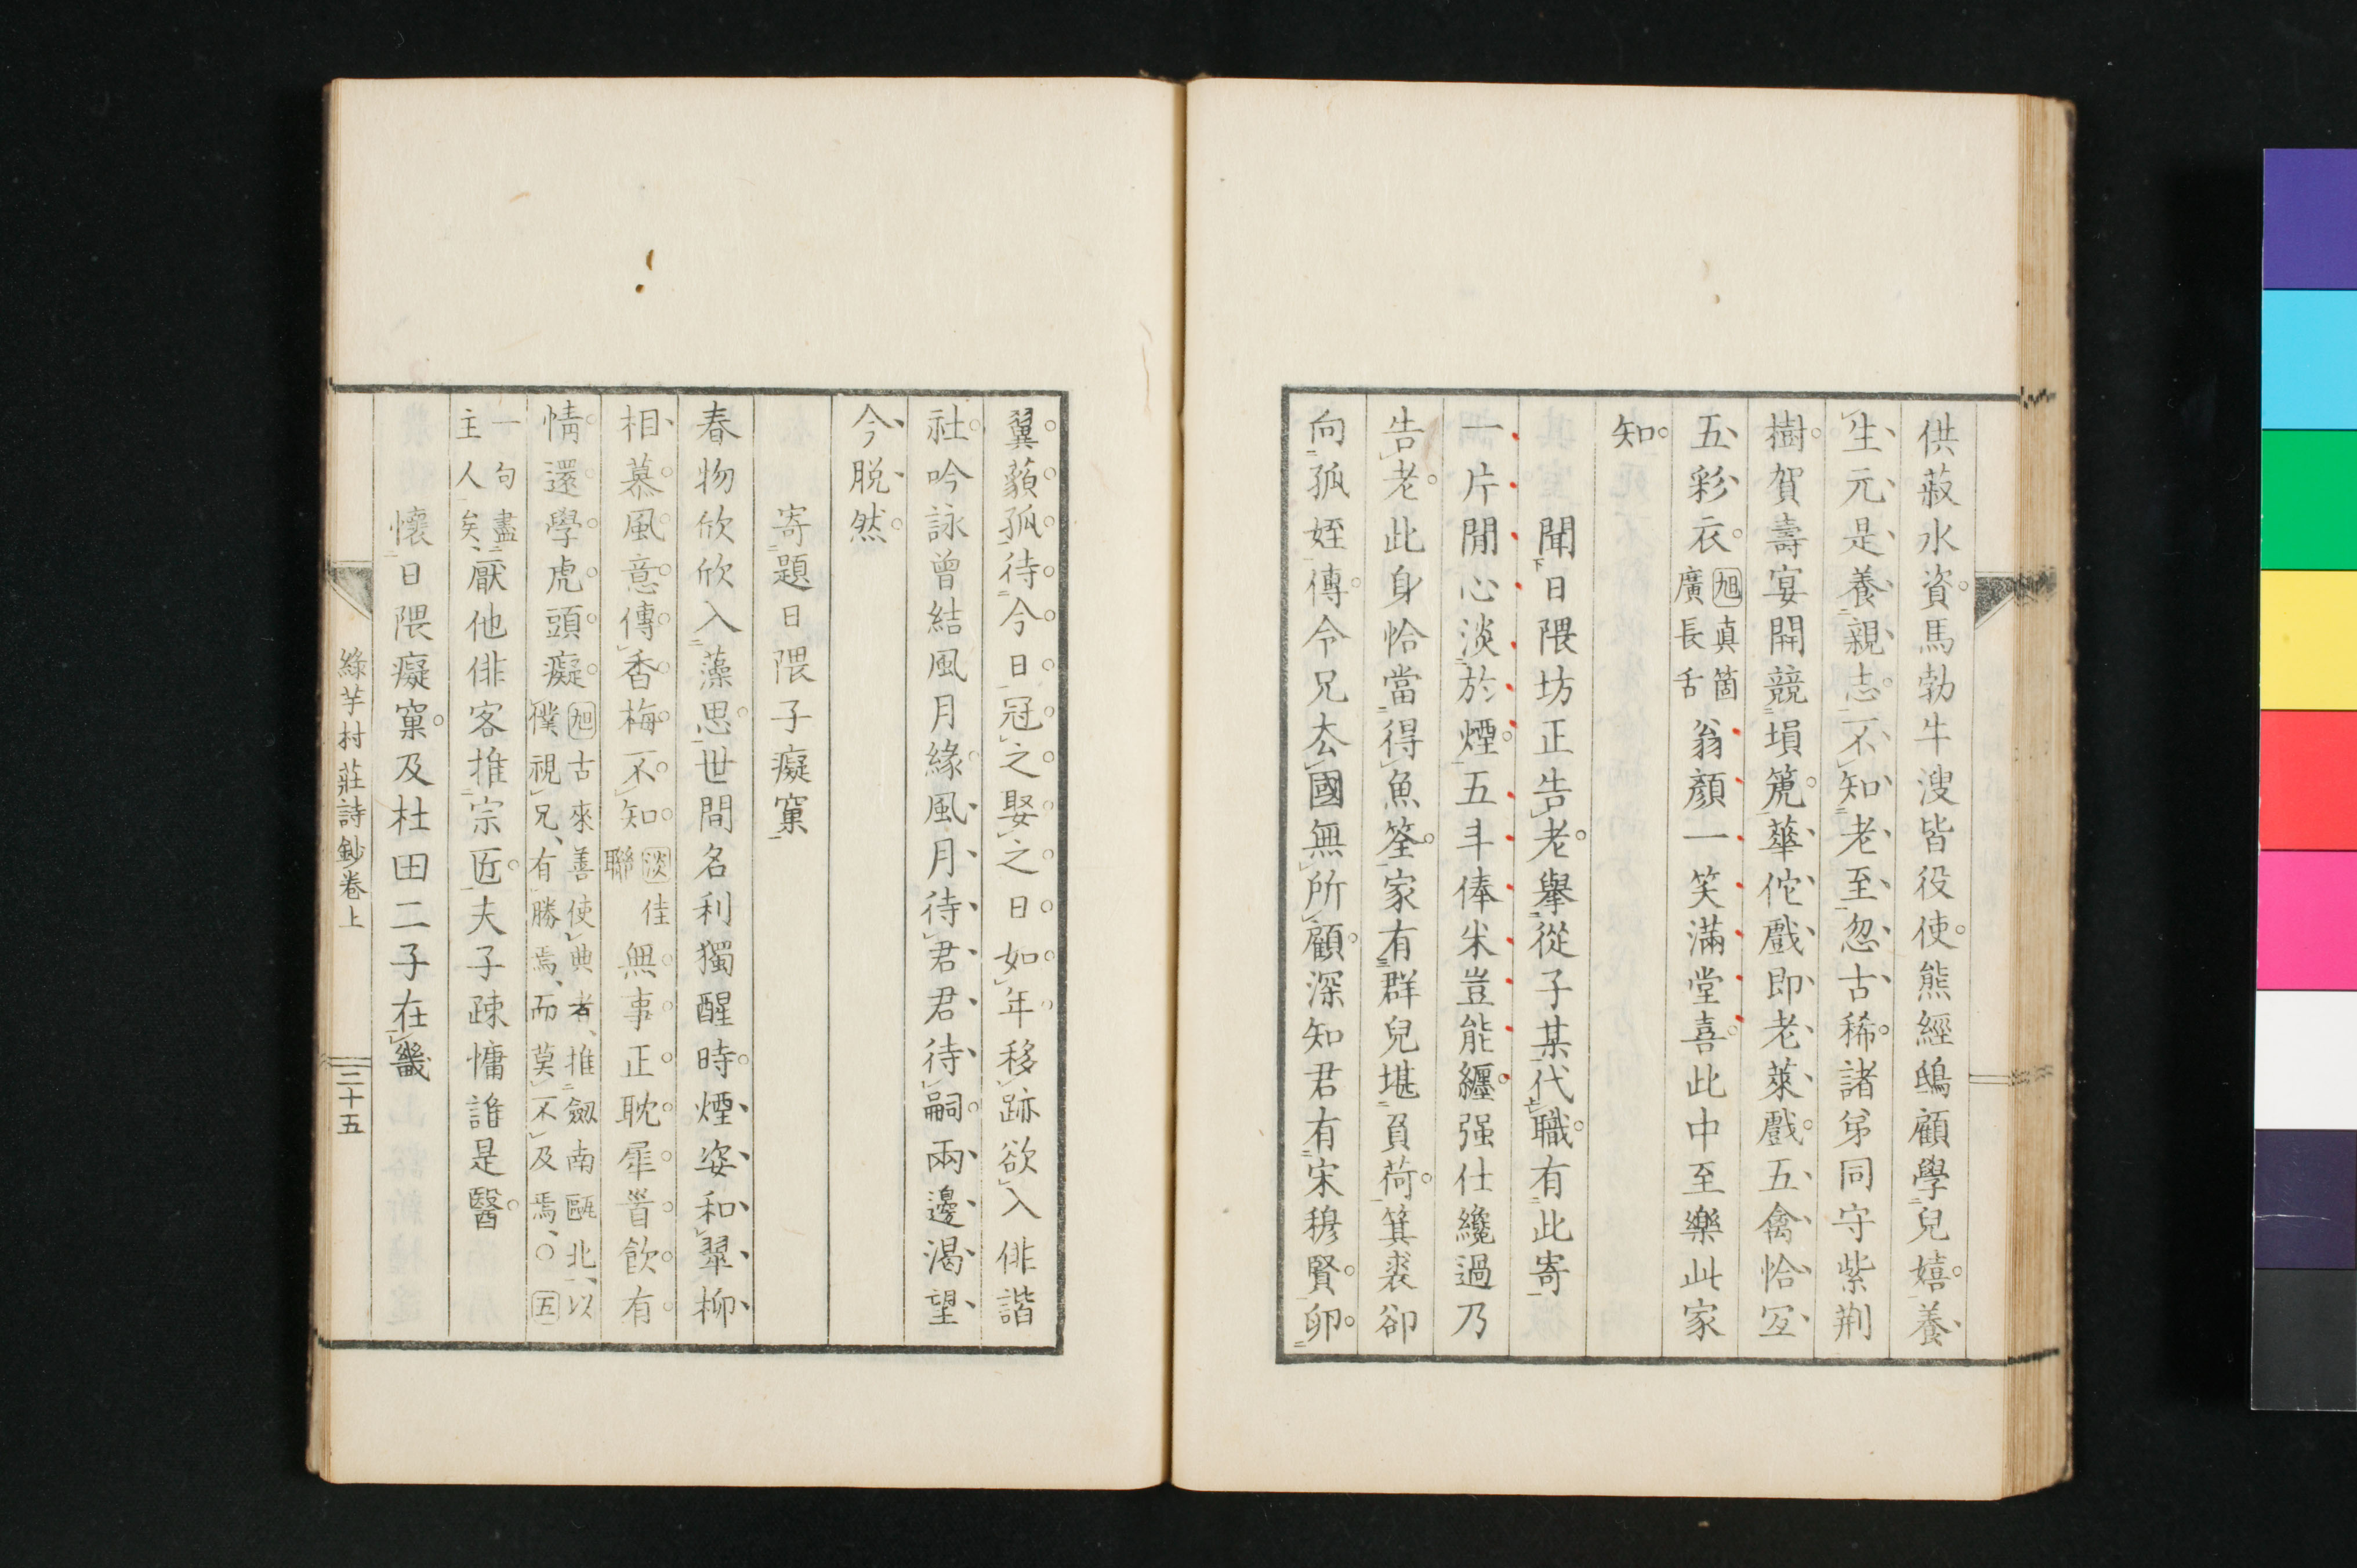 供菽水資。馬勃牛溲皆役使。熊經鴟顧學兒嬉。養
生元是養親志。不知老至忽古稀。諸弟同守紫荊
樹。賀壽宴開競塤篪。華佗戲即老萊戲。五禽恰宜
五彩衣。旭真箇廣長舌翁顏一笑滿堂喜。此中至樂此家
知。
聞日隈坊正告老。擧從子某代職。有此寄
一片閒心淡於煙。五斗俸米豈能纏。强仕纔過乃
告老。此身恰當得魚筌。家有群兒堪負荷。箕裘卻
向孤姪傳。令兄厺國無所顧。深知君有宋穆賢。卵
翼藐孤待今日。冠之娶之日如年。移跡欲入俳諧
社。吟詠曾結風月緣。風月待君君待嗣。兩邊渴望
今脫然。
寄題日隈子癡窠
春物欣欣入藻思。世間名利獨醒時。煙姿和翠柳
相慕。風意傳香梅不知。淡佳聯無事正耽犀首飮。有
情還學虎頭癡。旭古來善使典者、推劔南甌北、以僕視兄、有勝焉、而莫不及焉、○五
一句盡主人矣、厭他俳客推宗匠。夫子疎慵誰是醫。
懷日隈癡窠。及杜田二子在畿
綠芋村莊詩鈔卷上
三十五